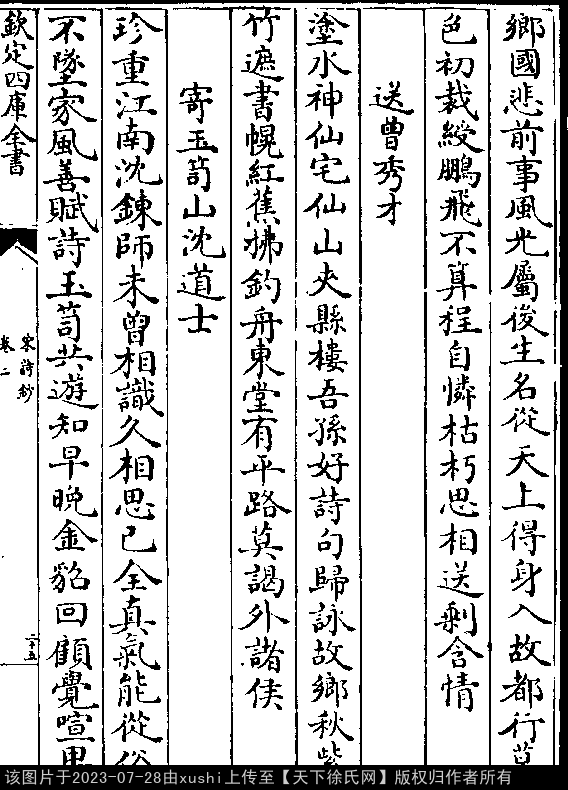 鄉國悲前事風光屬後生名從天上得身入故都行草
色初裁綬鵬飛不算程自憐枯朽思相送剩含情
送曾秀才
塗水神仙宅仙山夾縣樓吾孫好詩句歸詠故鄉秋紫
竹遮書幌紅蕉拂釣舟東堂有平路莫謁外諸侯
寄玉笥山沈道士
珍重江南沈鍊師未曾相識久相思已全真氣能從俗
不墜家風善賦詩玉笥共遊知早晚金貂回顧覺喧卑
欽定四庫全書
宋詩鈔
卷二
二十五
该图片于2023-07-28由xushi上传至【天下徐氏网】版权归作者所有